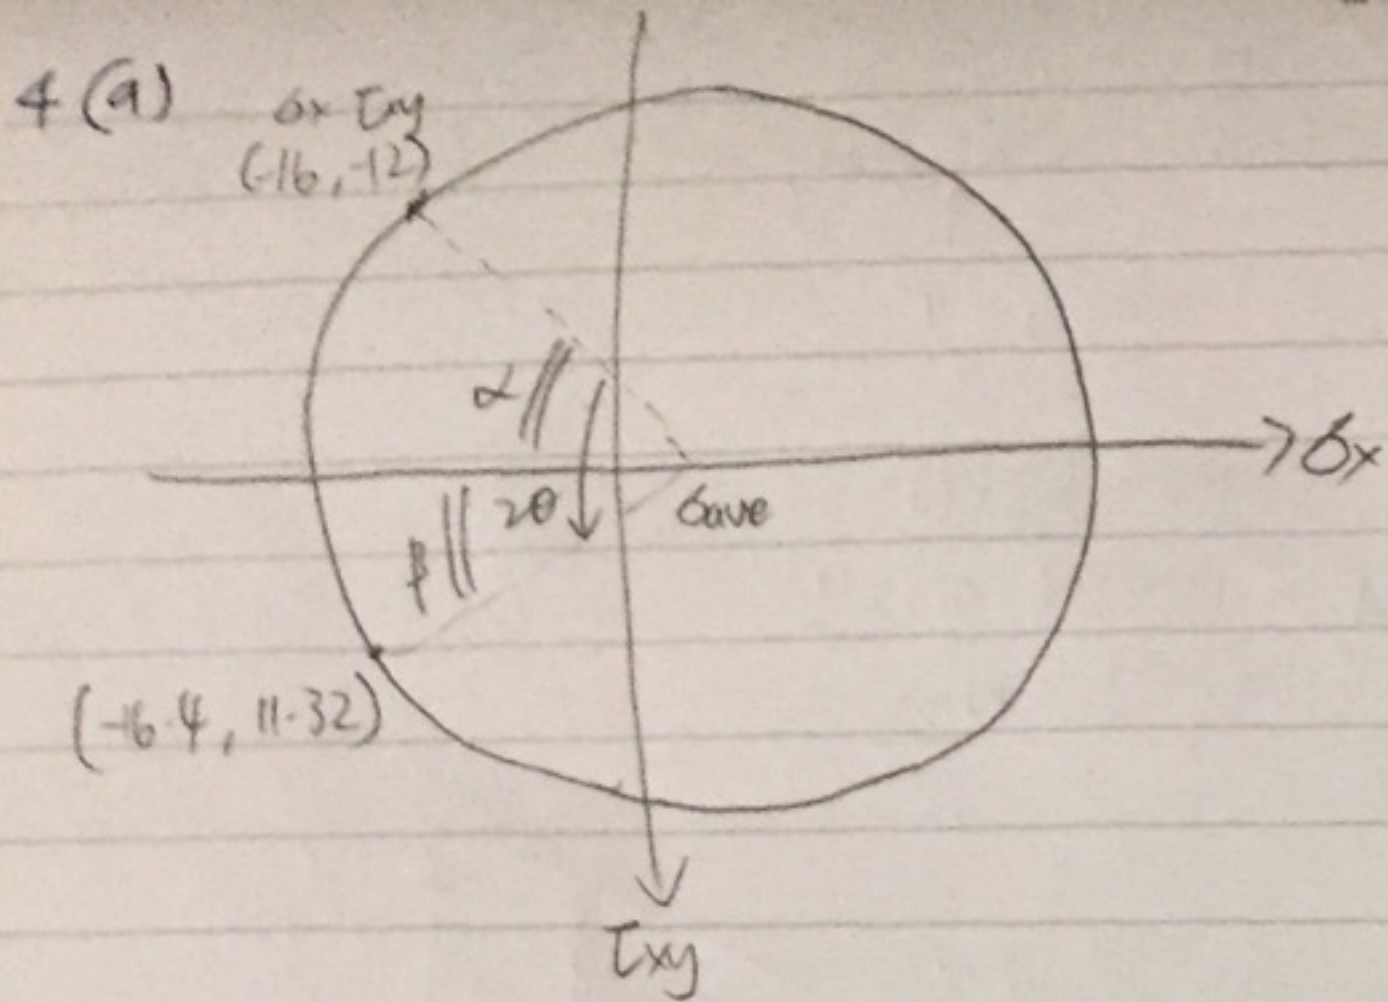 4 (a)
σx τxy
(-16, -12)
α
σx
2θ
σave
β
(-16.4, 11.32)
τxy